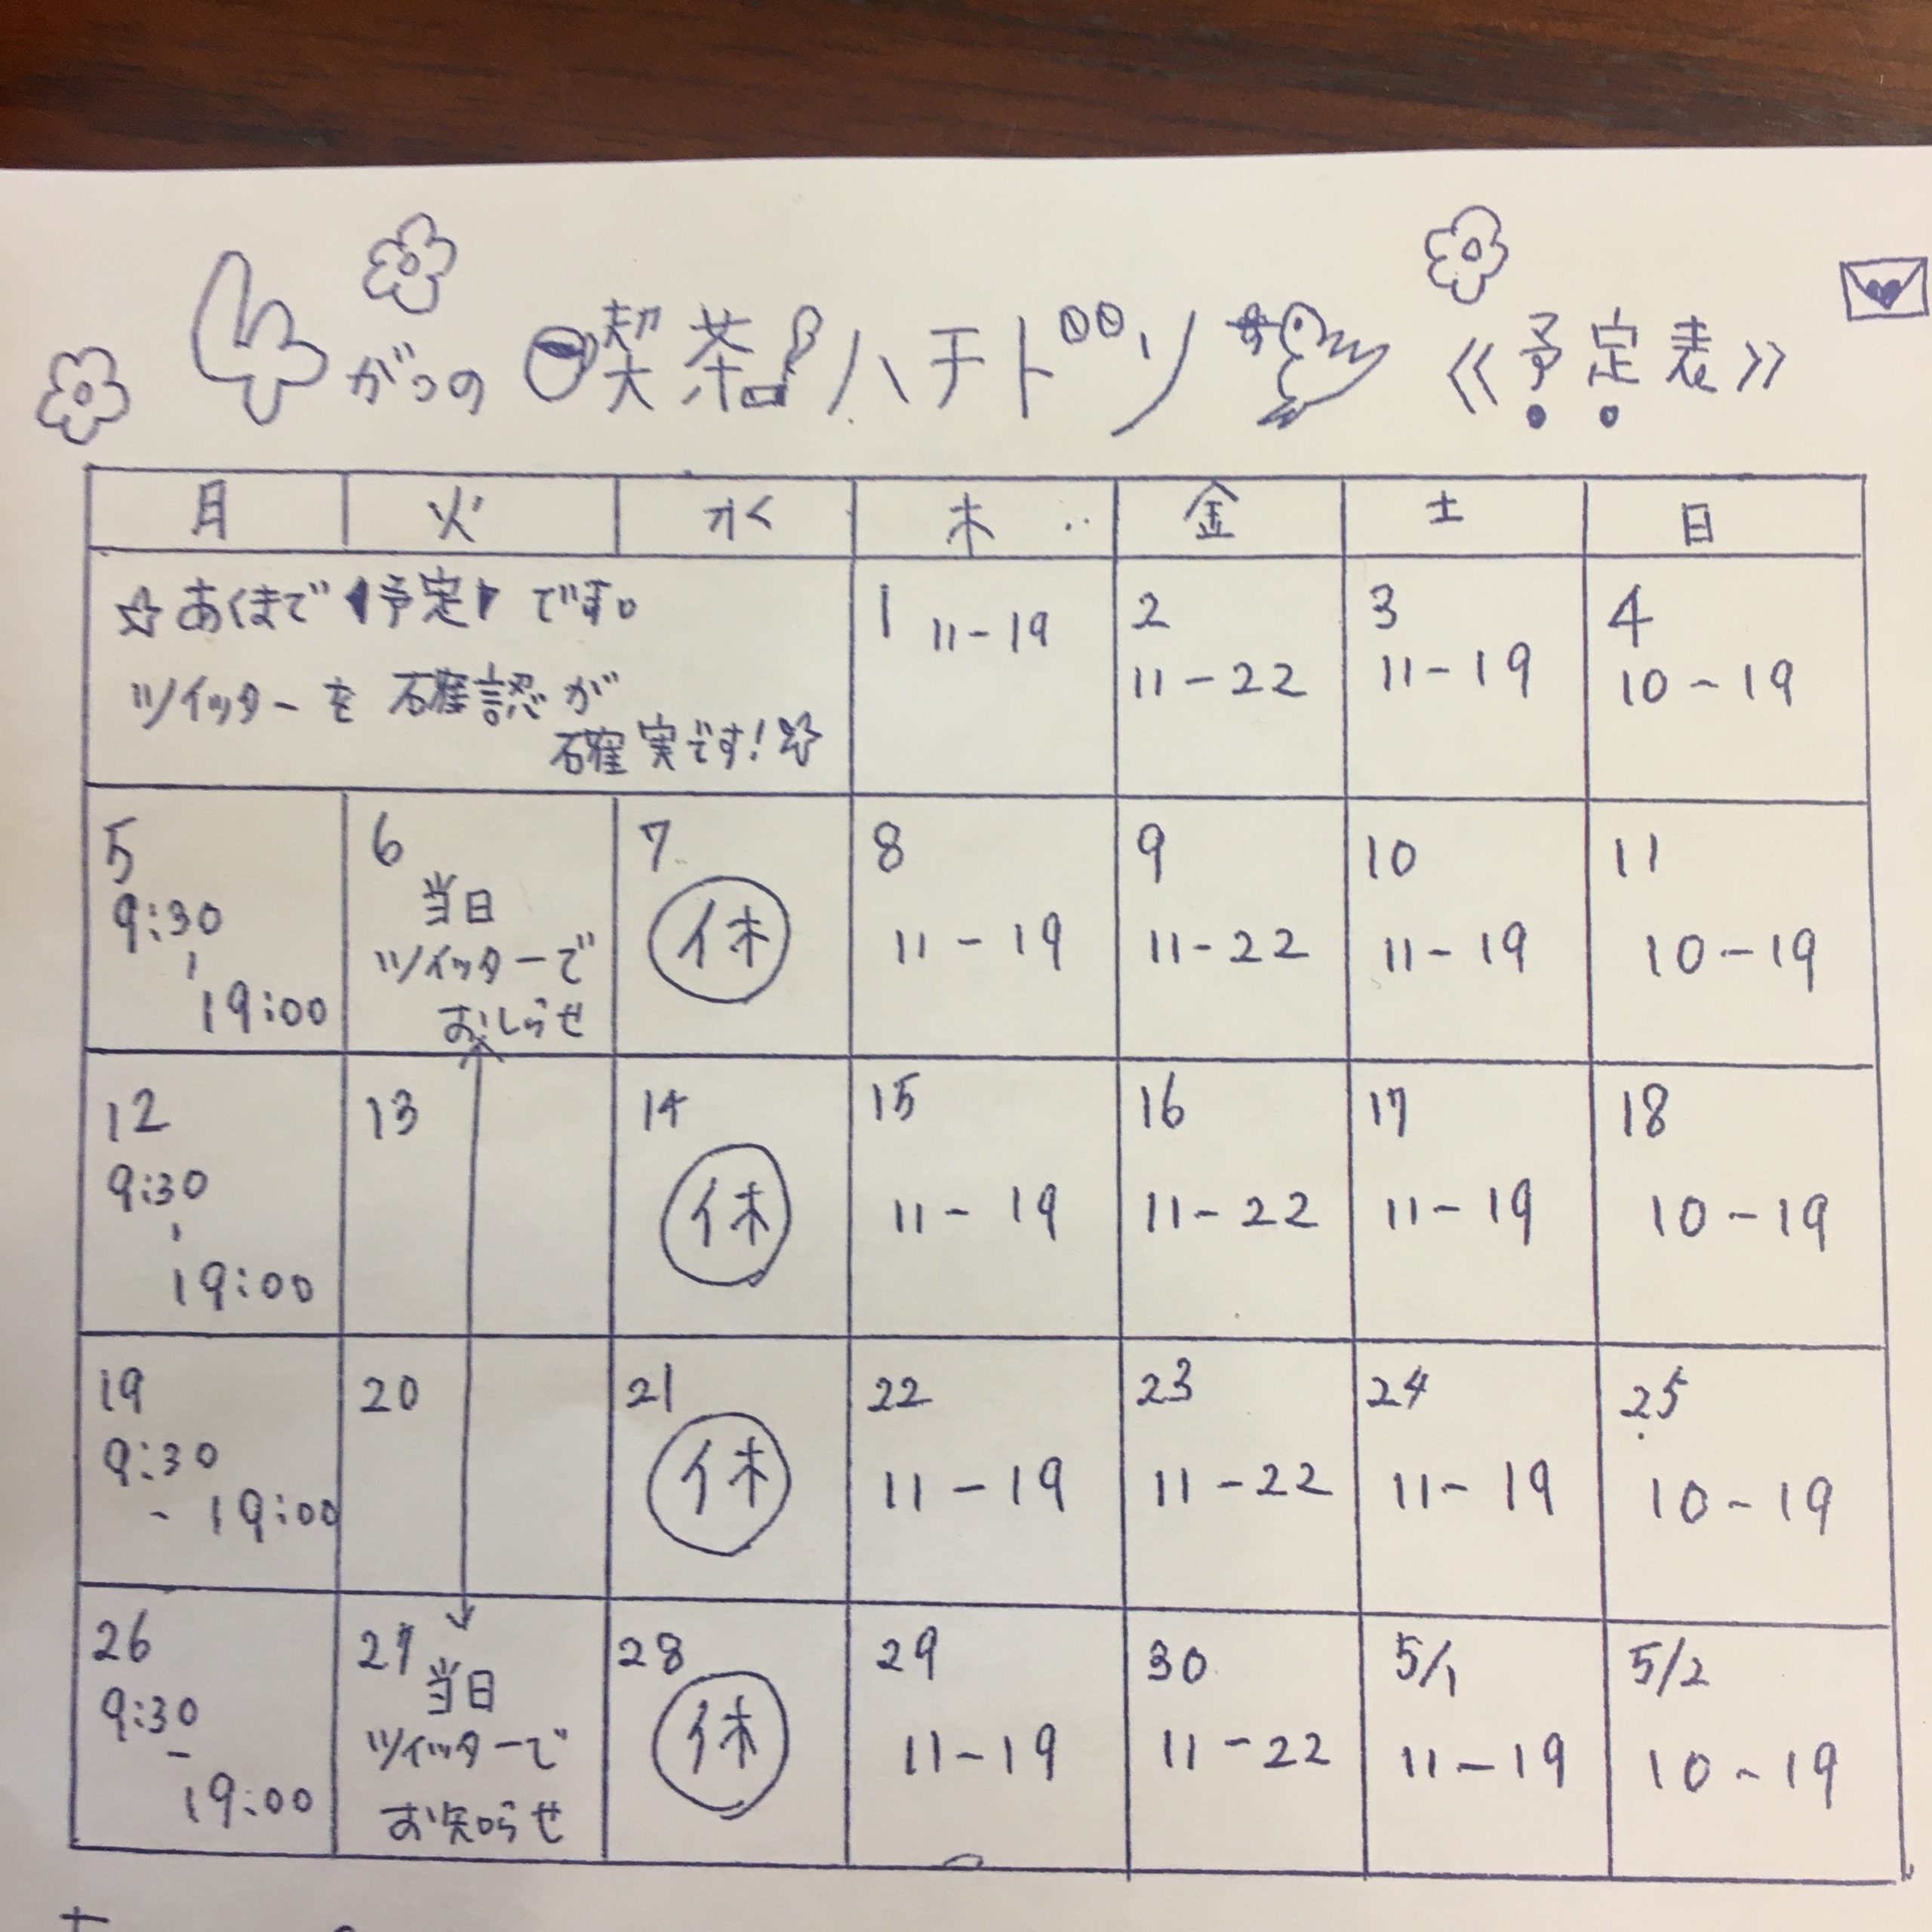 4がつの 喫茶ハチドリ 《予定表》
月 火 水 木 金 土 日
☆あくまで《予定》です。
ツイッターを確認が
確実です!☆
1 11-19
2 11-22
3 11-19
4 10-19
5 9:30-19:00
6 当日
ツイッターで
おしらせ
7 休
8 11-19
9 11-22
10 11-19
11 10-19
12 9:30-19:00
13
14 休
15 11-19
16 11-22
17 11-19
18 10-19
19 9:30-19:00
20
21 休
22 11-19
23 11-22
24 11-19
25 10-19
26 9:30-19:00
27 当日
ツイッターで
お知らせ
28 休
29 11-19
30 11-22
5/1 11-19
5/2 10-19